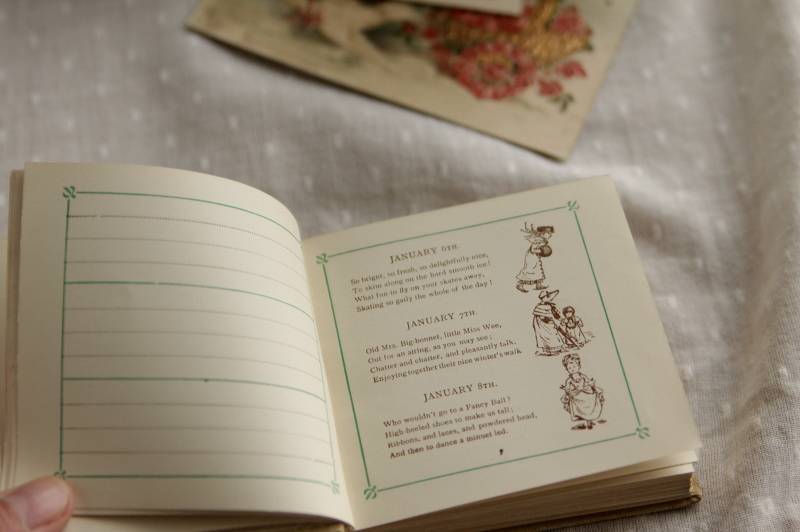 JANUARY 6TH.
So bright, so fresh, so delightfully nice,
To skim along on the hard smooth ice!
What fun to fly on your skates away,
Skating so gaily the whole of the day!
JANUARY 7TH.
Old Mrs. Big-bonnet, little Miss Wee,
Out for an airing, as you may see;
Chatter and chatter, and pleasantly talk,
Enjoying together their nice winter's walk
JANUARY 8TH.
Who wouldn't go to a Fancy Ball?
High-heeled shoes to make us tall;
Ribbons, and laces, and powdered head,
And then to dance a minuet led.